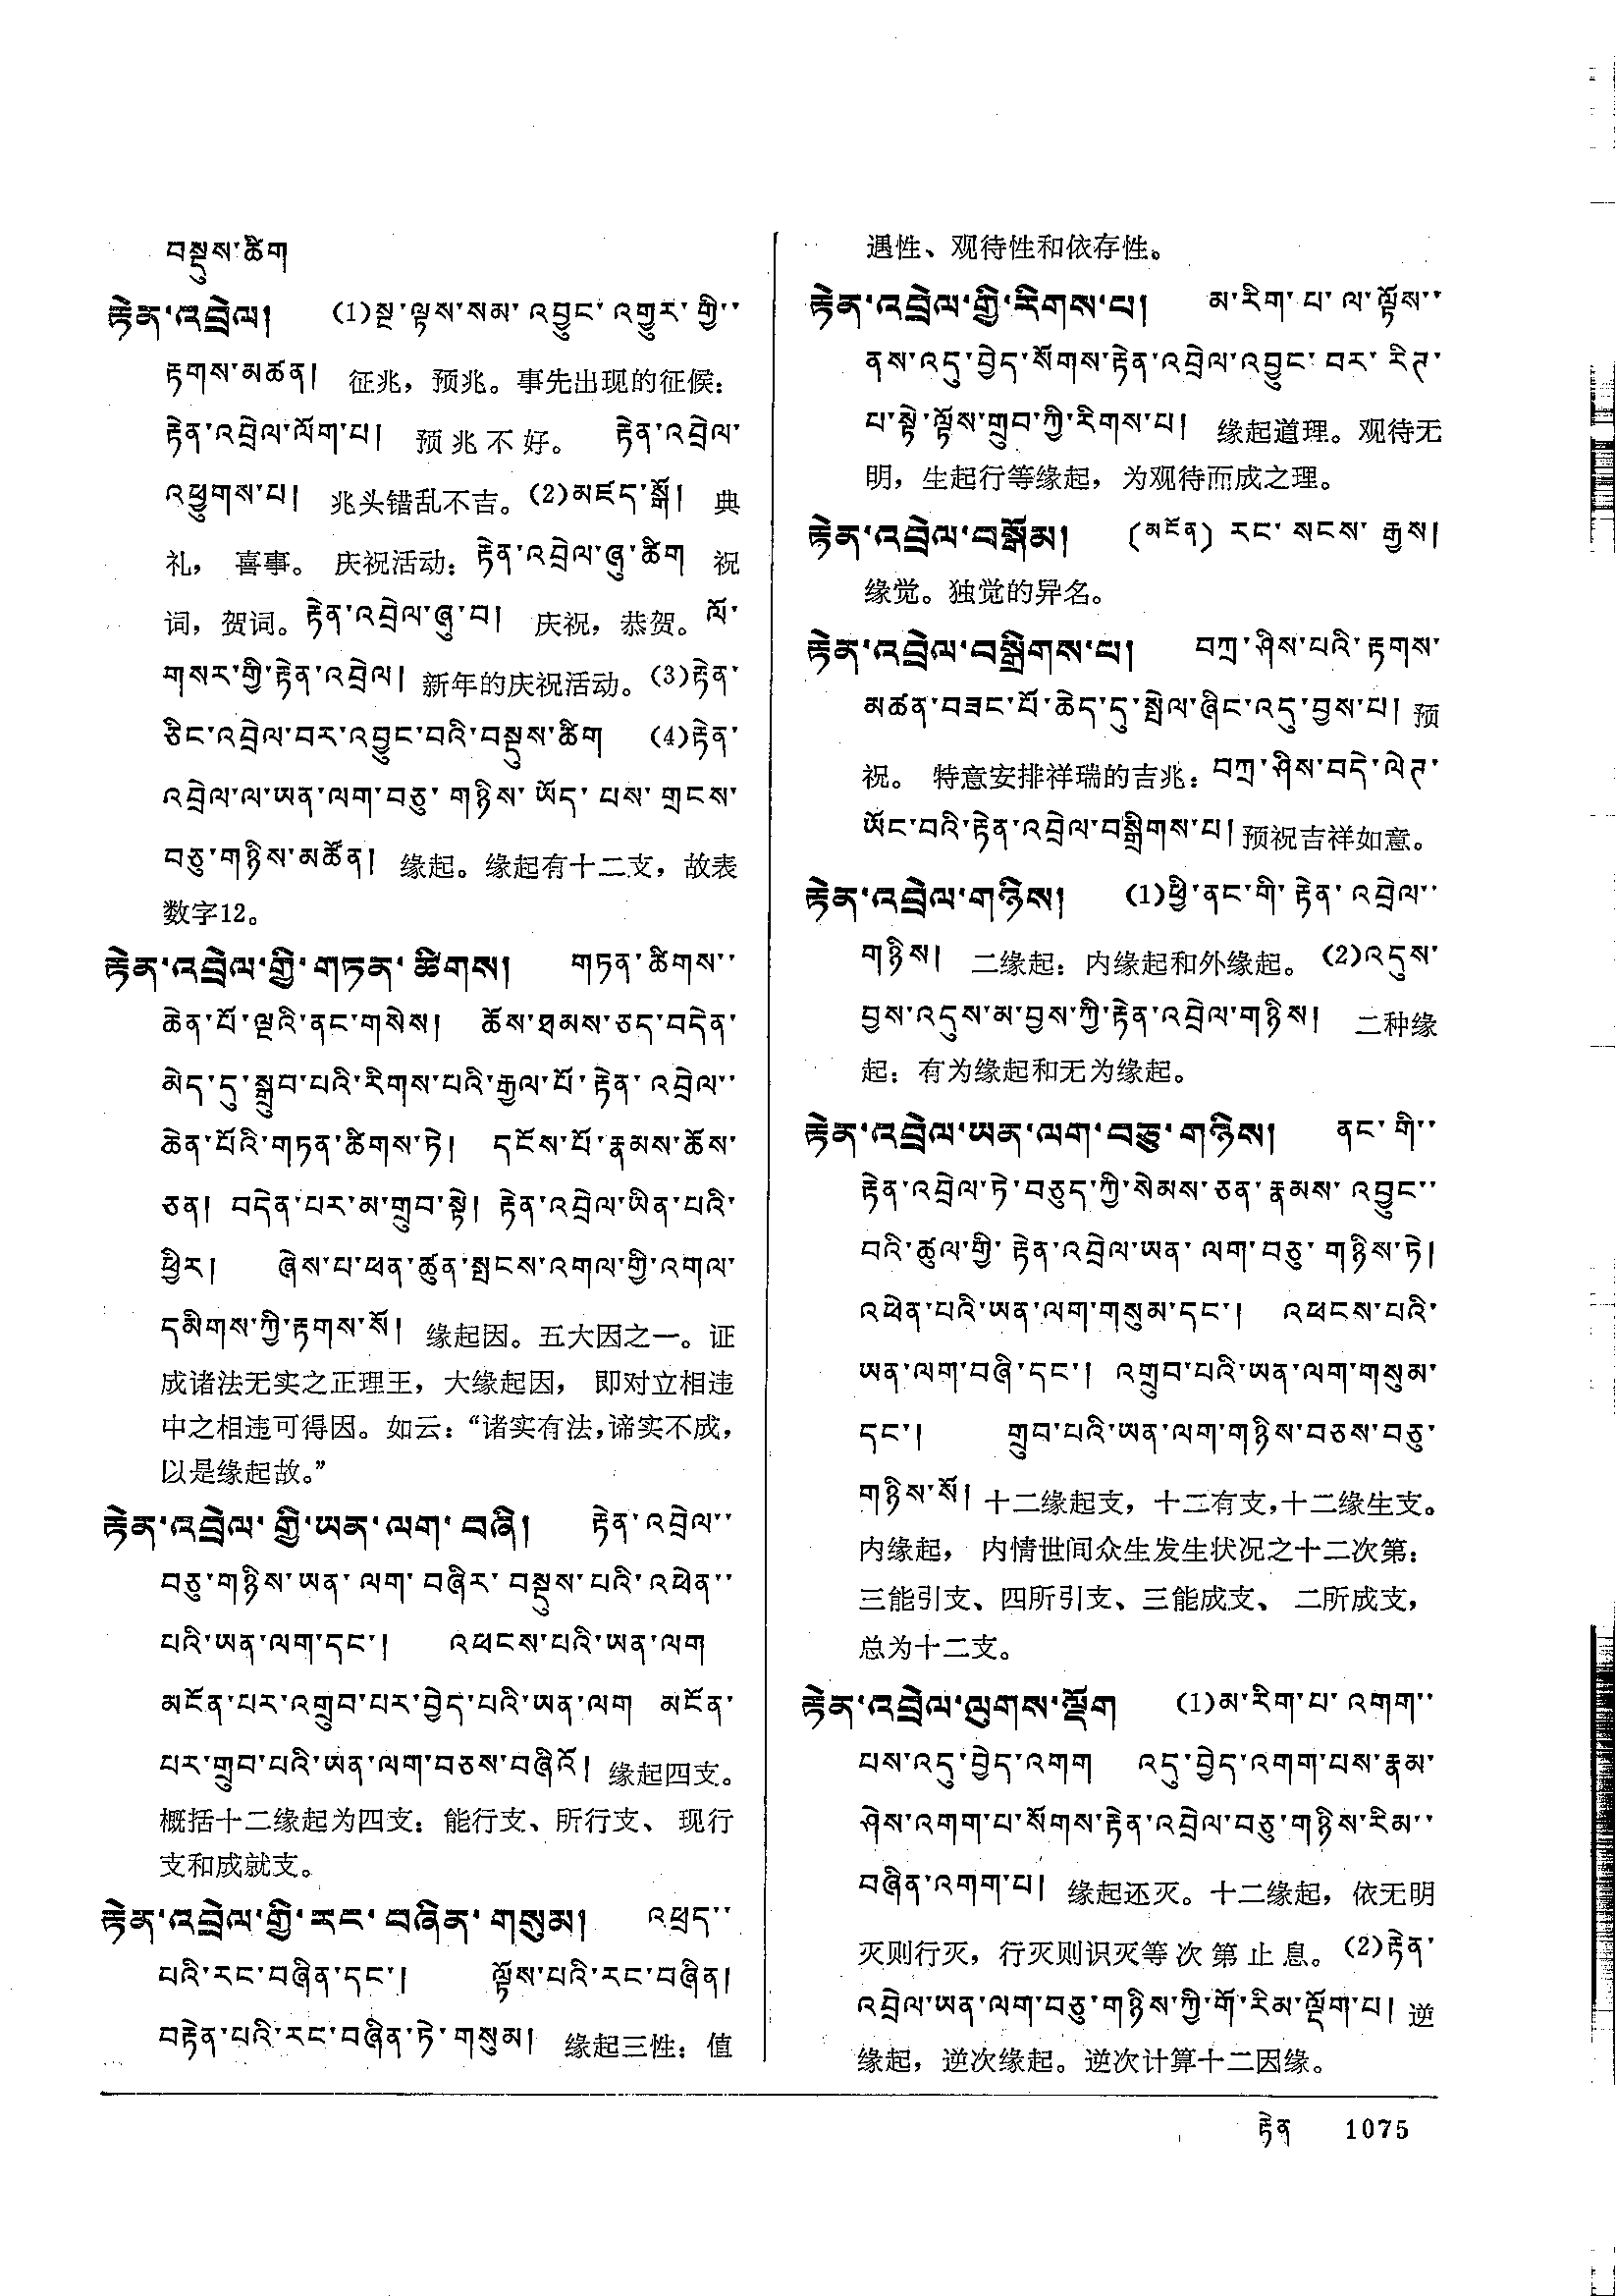 བསྡུས་ཚིག
རྟེན་འབྲེལ། (1)སྔ་ལྟས་སམ་འབྱུང་འགྱུར་གྱི་
རྟགས་མཚན། 征兆，预兆。事先出现的征候：
རྟེན་འབྲེལ་ལོག་པ། 预兆不好。 རྟེན་འབྲེལ་
འཕྱུགས་པ། 兆头错乱不吉。(2)མཛད་སྒོ། 典
礼， 喜事。 庆祝活动：རྟེན་འབྲེལ་ཞུ་ཚིག 祝
词，贺词。རྟེན་འབྲེལ་ཞུ་བ། 庆祝，恭贺。ལོ་
གསར་གྱི་རྟེན་འབྲེལ། 新年的庆祝活动。(3)རྟེན་
ཅིང་འབྲེལ་བར་འབྱུང་བའི་བསྡུས་ཚིག (4)རྟེན་
འབྲེལ་ལ་ཡན་ལག་བཅུ་གཉིས་ཡོད་པས་གྲངས་
བཅུ་གཉིས་མཚོན། 缘起。缘起有十二支，故表
数字12。
རྟེན་འབྲེལ་གྱི་གཏན་ཚིགས། གཏན་ཚིགས་
ཆེན་པོ་ལྔའི་ནང་གསེས། ཆོས་ཐམས་ཅད་བདེན་
མེད་དུ་སྒྲུབ་པའི་རིགས་པའི་རྒྱལ་པོ་རྟེན་འབྲེལ་
ཆེན་པོའི་གཏན་ཚིགས་ཏེ། དངོས་པོ་རྣམས་ཆོས་
ཅན། བདེན་པར་མ་གྲུབ་སྟེ། རྟེན་འབྲེལ་ཡིན་པའི་
ཕྱིར། ཞེས་པ་ཕན་ཚུན་སྤངས་འགལ་གྱི་འགལ་
དམིགས་ཀྱི་རྟགས་སོ། 缘起因。五大因之一。证
成诸法无实之正理王，大缘起因， 即对立相违
中之相违可得因。如云：“诸实有法，谛实不成，
以是缘起故。”
རྟེན་འབྲེལ་གྱི་ཡན་ལག་བཞི། རྟེན་འབྲེལ་
བཅུ་གཉིས་ཡན་ལག་བཞིར་བསྡུས་པའི་འཕེན་
པའི་ཡན་ལག་དང་། འཕངས་པའི་ཡན་ལག
མངོན་པར་འགྲུབ་པར་བྱེད་པའི་ཡན་ལག མངོན་
པར་གྲུབ་པའི་ཡན་ལག་བཅས་བཞིའོ། 缘起四支。
概括十二缘起为四支：能行支、所行支、 现行
支和成就支。
རྟེན་འབྲེལ་གྱི་རང་བཞིན་གསུམ། འཕྲད་
པའི་རང་བཞིན་དང་། ལྟོས་པའི་རང་བཞིན།
བརྟེན་པའི་རང་བཞིན་ཏེ་གསུམ། 缘起三性：值
遇性、观待性和依存性。
རྟེན་འབྲེལ་གྱི་རིགས་པ། མ་རིག་པ་ལ་ལྟོས་
ནས་འདུ་བྱེད་སོགས་རྟེན་འབྲེལ་འབྱུང་བར་རིཊ་
པ་སྟེ་ལྟོས་གྲུབ་ཀྱི་རིགས་པ། 缘起道理。观待无
明，生起行等缘起，为观待而成之理。
རྟེན་འབྲེལ་བསྒོམ། (མངོན) རང་སངས་རྒྱས།
缘觉。独觉的异名。
རྟེན་འབྲེལ་བསྒྲིགས་པ། བཀྲ་ཤིས་པའི་རྟགས་
མཚན་བཟང་པོ་ཆེད་དུ་སྤེལ་ཞིང་འདུ་བྱས་པ། 预
祝。 特意安排祥瑞的吉兆：བཀྲ་ཤིས་བདེ་ལེཊ་
ཡོང་བའི་རྟེན་འབྲེལ་བསྒྲིགས་པ། 预祝吉祥如意。
རྟེན་འབྲེལ་གཉིས། (1)ཕྱི་ནང་གི་རྟེན་འབྲེལ་
གཉིས། 二缘起：内缘起和外缘起。(2)འདུས་
བྱས་འདུས་མ་བྱས་ཀྱི་རྟེན་འབྲེལ་གཉིས། 二种缘
起：有为缘起和无为缘起。
རྟེན་འབྲེལ་ཡན་ལག་བཅུ་གཉིས། ནང་གི་
རྟེན་འབྲེལ་ཏེ་བཅུད་ཀྱི་སེམས་ཅན་རྣམས་འབྱུང་
བའི་ཚུལ་གྱི་རྟེན་འབྲེལ་ཡན་ལག་བཅུ་གཉིས་ཏེ།
འཕེན་པའི་ཡན་ལག་གསུམ་དང་། འཕངས་པའི་
ཡན་ལག་བཞི་དང་། འགྲུབ་པའི་ཡན་ལག་གསུམ་
དང་། གྲུབ་པའི་ཡན་ལག་གཉིས་བཅས་བཅུ་
གཉིས་སོ། 十二缘起支，十二有支，十二缘生支。
内缘起， 内情世间众生发生状况之十二次第：
三能引支、四所引支、三能成支、 二所成支，
总为十二支。
རྟེན་འབྲེལ་ལུགས་ལྡོག (1)མ་རིག་པ་འགག་
པས་འདུ་བྱེད་འགག འདུ་བྱེད་འགག་པས་རྣམ་
ཤེས་འགག་པ་སོགས་རྟེན་འབྲེལ་བཅུ་གཉིས་རིམ་
བཞིན་འགག་པ། 缘起还灭。十二缘起，依无明
灭则行灭，行灭则识灭等次第止息。(2)རྟེན་
འབྲེལ་ཡན་ལག་བཅུ་གཉིས་ཀྱི་གོ་རིམ་ལྡོག་པ། 逆
缘起，逆次缘起。逆次计算十二因缘。
རྟེན 1075